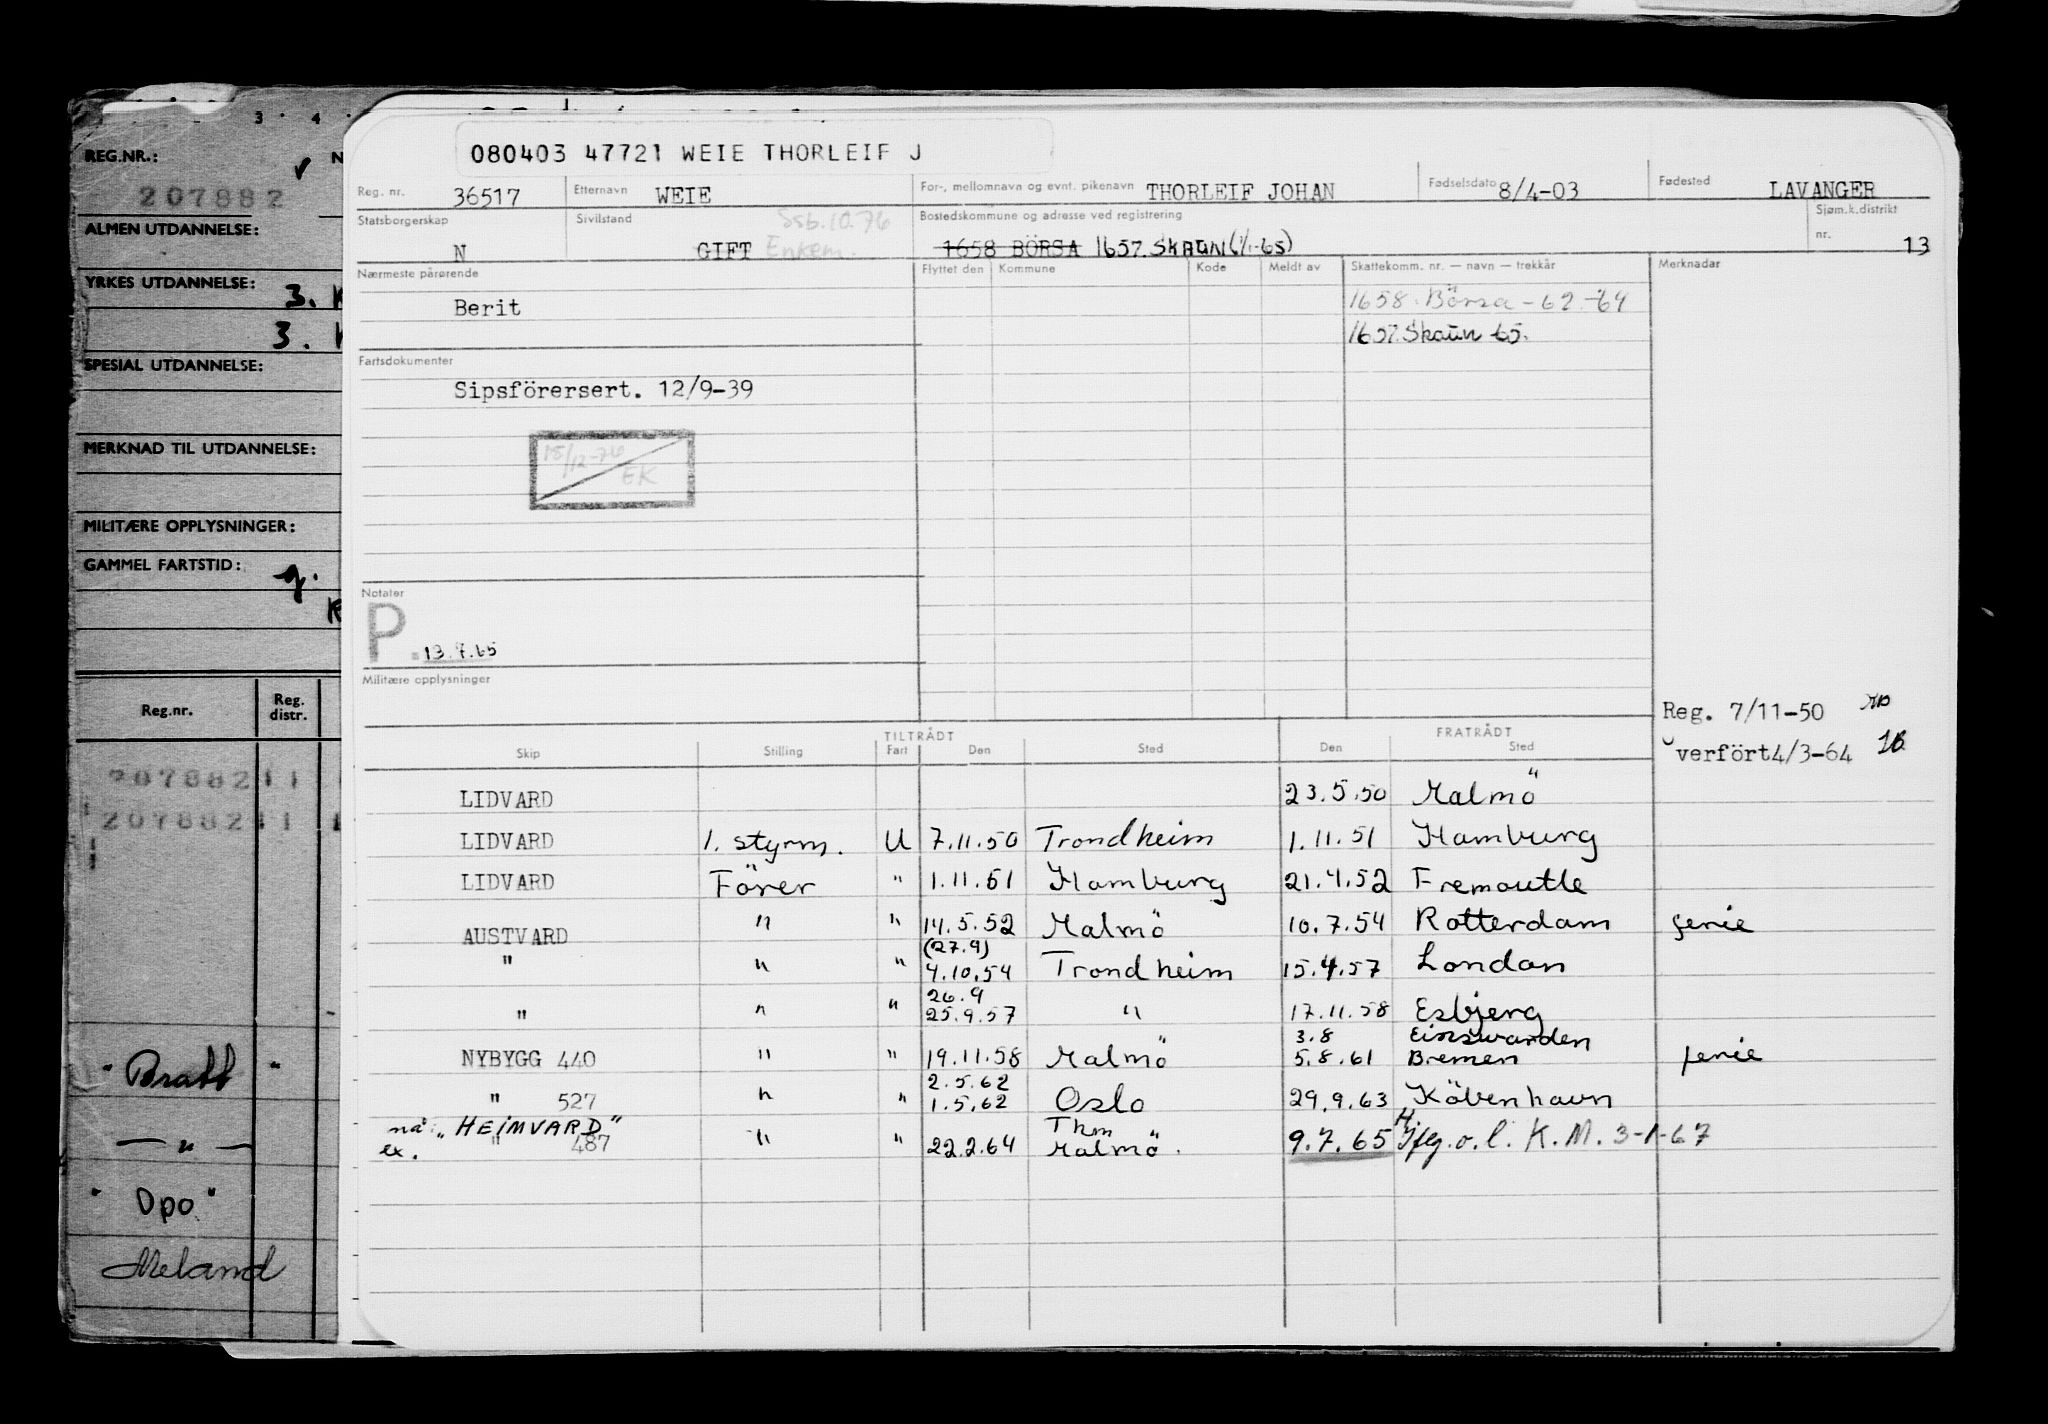 3 · 4 ·
REG.NR.:
207882
ALMEN UTDANNELSE:
YRKES UTDANNELSE:
3.
3.
SPESIAL UTDANNELSE:
MERKNAD TIL UTDANNELSE:
MILITÆRE OPPLYSNINGER:
GAMMEL FARTSTID:
Reg.nr. Reg. distr.
20788211
20788211
"Bratt" "
— " —
"Opo"
Meland
080403 47721 WEIE THORLEIF J
Reg. nr. 36517 Etternavn WEIE For-, mellomnavn og evnt. pikenavn THORLEIF JOHAN Fødselsdato 8/4-03 Fødested LAVANGER
Statsborgerskap Sivilstand Ssb.10.76 Bostedskommune og adresse ved registrering Sjøm.k.distrikt nr.
N GIFT Enkem. 1658 BÖRSA 1657 SKAUN (1/1-65) 13
Nærmeste pårørende Flyttet den Kommune Kode Meldt av Skattekomm. nr. — navn — trekkår Merknader
Berit 1658 Börsa -62-64
1657 Skaun 65.
Fartsdokumenter
Sipsförersert. 12/9-39
15/12-76 EK
Notater
P. 13.7.65
Militære opplysninger
Reg. 7/11-50
verfört4/3-64
TILTRÅDT FRATRÅDT
Skip Stilling Fart Den Sted Den Sted
LIDVARD 23.5.50 Malmö
LIDVARD 1. styrm. U 7.11.50 Trondheim 1.11.51 Hamburg
LIDVARD Förer " 1.11.51 Hamburg 21.4.52 Fremoutle
AUSTVARD " " 14.5.52 Malmö 10.7.54 Rotterdam ferie
(27.9)
" " " 4.10.54 Trondheim 15.4.57 London
26.9
" " " 25.9.57 " 17.11.58 Esbjerg
3.8 Einswarden
NYBYGG 440 " " 19.11.58 Malmö 5.8.61 Bremen ferie
2.5.62
" 527 " " 1.5.62 Oslo 29.9.63 Köbenhavn
nå: "HEIMVARD" Thm
ex. " 487 " " 22.2.64 Malmö. 9.7.65 o.l. K.M. 3-1-67